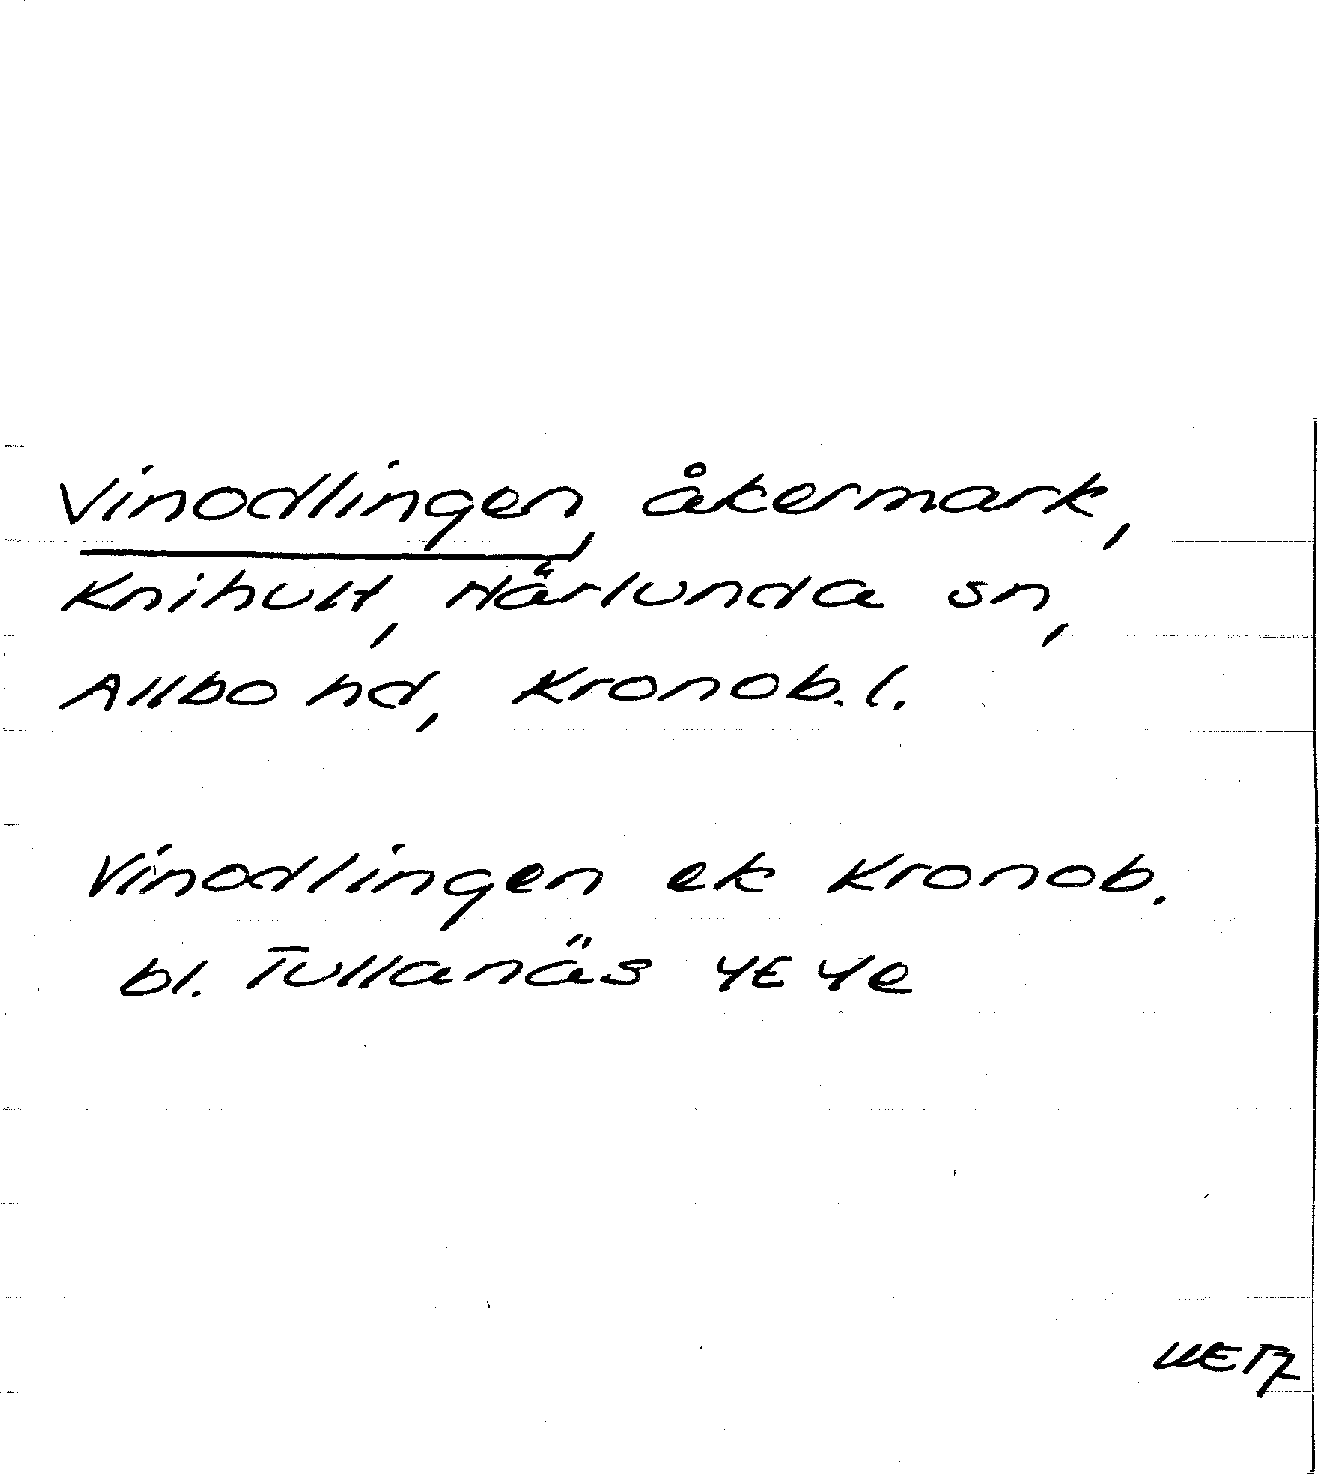 Vinodlingen, åkermark,
Knihult, Härlunda sn,
Allbo hd, Kronob. l.
Vinodlingen ek Kronob.
bl. Tullanäs 4E 4e